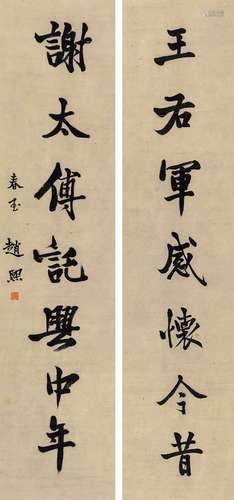 王右軍感懷今昔
謝太傅託興中年
春玉 趙熙